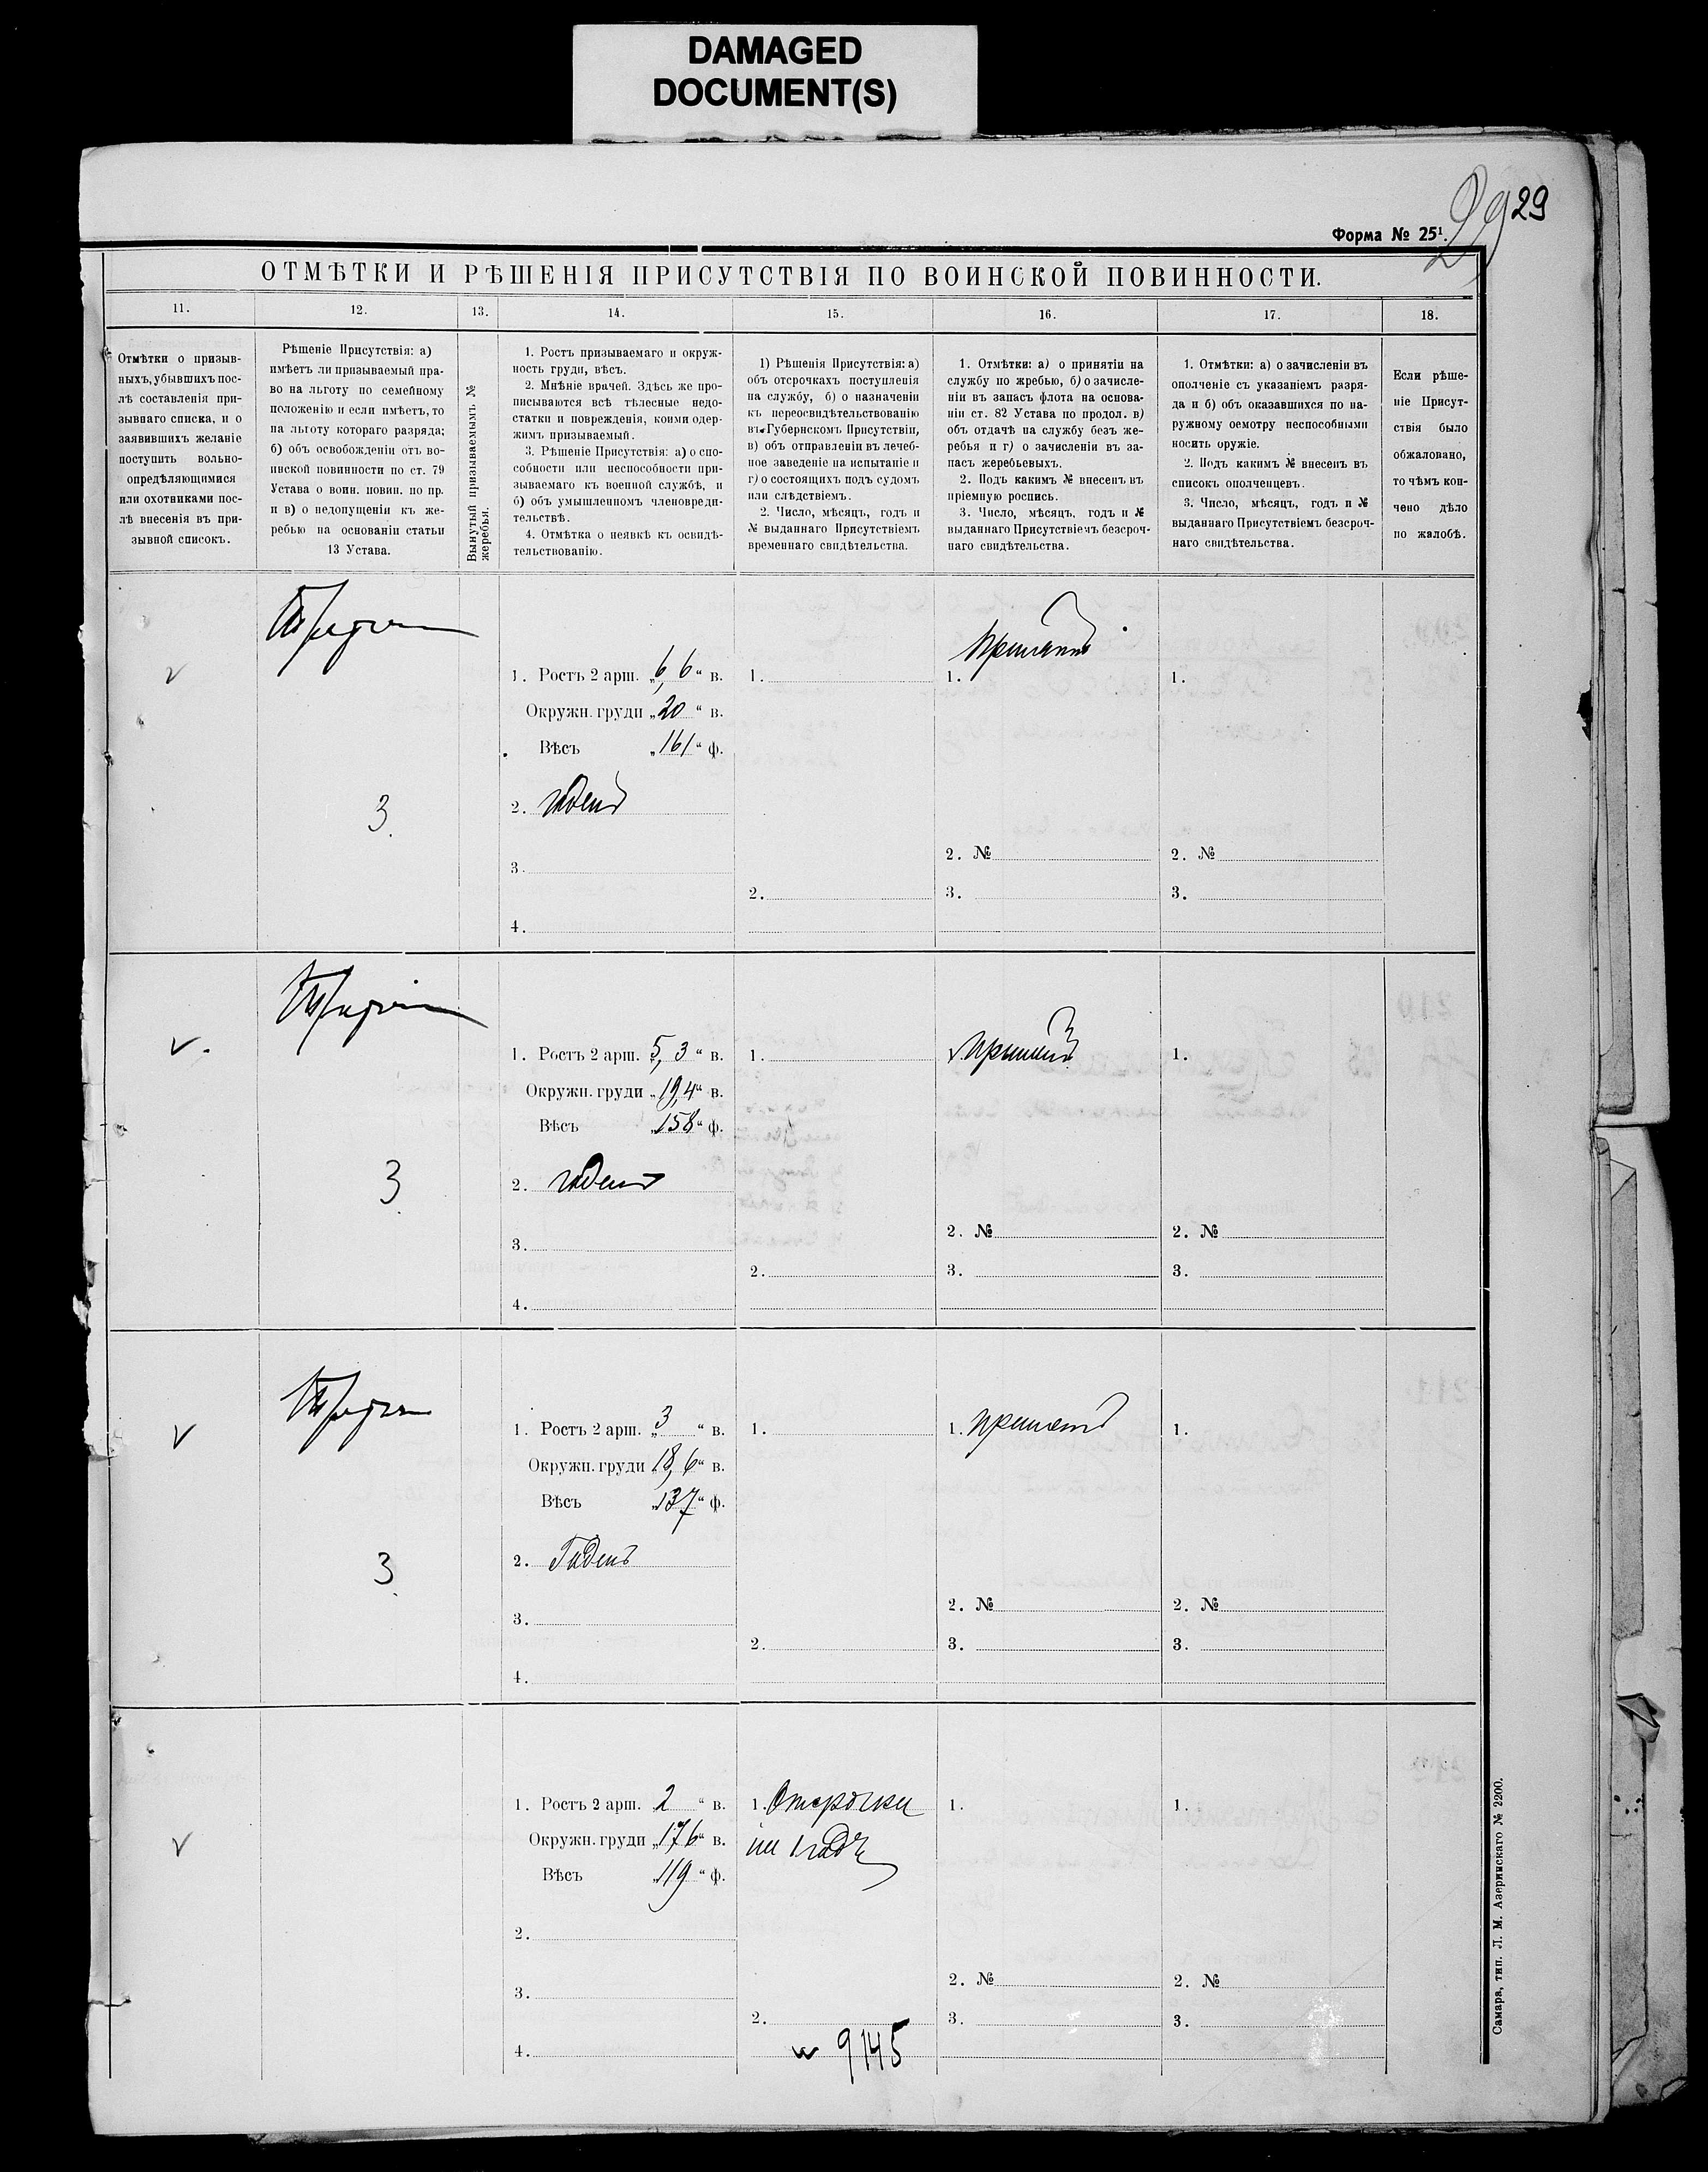 DAMAGED
DOCUMENT(S)
29
29
Форма № 25¹.
ОТМѢТКИ И РѢШЕНІЯ ПРИСУТСТВІЯ ПО ВОИНСКОЙ ПОВИННОСТИ.
11.
12.
13.
14.
15.
16.
17.
18.
Отмѣтки о призыв-
ныхъ, убывшихъ пос-
лѣ составленія при-
зывнаго списка, и о
заявившихъ желаніе
поступить вольно-
опредѣляющимися
или охотниками пос-
лѣ внесенія въ при-
зывной списокъ.
Рѣшеніе Присутствія: а)
имѣетъ ли призываемый пра-
во на льготу по семейному
положенію и если имѣетъ, то
на льготу котораго разряда;
б) объ освобожденіи отъ во-
инской повинности по ст. 79
Устава о воин. повин. по пр.
и в) о недопущеніи къ же-
ребью на основаніи статьи
13 Устава.
Вынутый призываемымъ №
жеребья.
1. Ростъ призываемаго и окруж-
ность груди, вѣсъ.
2. Мнѣніе врачей. Здѣсь же про-
писываются всѣ тѣлесные недо-
статки и поврежденія, коими одер-
жимъ призываемый.
3. Рѣшеніе Присутствія: а) о спо-
собности или неспособности при-
зываемаго къ военной службѣ, и
б) объ умышленномъ членовреди-
тельствѣ.
4. Отмѣтка о неявкѣ къ освидѣ-
тельствованію.
1) Рѣшенія Присутствія: а)
объ отсрочкахъ поступленія
на службу, б) о назначеніи
къ переосвидѣтельствованію
въ Губернскомъ Присутствіи,
в) объ отправленіи въ лечеб-
ное заведеніе на испытаніе и
г) о состоящихъ подъ судомъ
или слѣдствіемъ.
2. Число, мѣсяцъ, годъ и
№ выданнаго Присутствіемъ
временнаго свидѣтельства.
1. Отмѣтки: а) о принятіи на
службу по жребью, б) о зачисле-
ніи въ запасъ флота на основа-
ніи ст. 82 Устава по продол. в)
объ отдачѣ на службу безъ же-
ребья и г) о зачисленіи въ за-
пасъ жеребьевыхъ.
2. Подъ какимъ № внесенъ въ
пріемную роспись.
3. Число, мѣсяцъ, годъ и №
выданнаго Присутствіемъ безсроч-
наго свидѣтельства.
1. Отмѣтки: а) о зачисленіи въ
ополченіе съ указаніемъ разря-
да и б) объ оказавшихся по на-
ружному осмотру неспособными
носить оружіе.
2. Подъ какимъ № внесенъ въ
списокъ ополченцевъ.
3. Число, мѣсяцъ, годъ и №
выданнаго Присутствіемъ безсроч-
наго свидѣтельства.
Если рѣше-
ніе Присут-
ствія было
обжаловано,
то чѣмъ кон-
чено дѣло
по жалобѣ.
3.
1. Ростъ 2 арш. „6,6“ в.
Окружн. груди „20“ в.
Вѣсъ „161“ ф.
2. годенъ
3.
4.
1.
2.
Принятъ
1.
2. №
3.
1.
2. №
3.
3.
1. Ростъ 2 арш. „5,3“ в.
Окружн. груди „19,4“ в.
Вѣсъ „158“ ф.
2. годенъ
3.
4.
1.
2.
принятъ
2. №
3.
1.
2. №
3.
3.
1. Ростъ 2 арш. „3“ в.
Окружн. груди „18,6“ в.
Вѣсъ „137“ ф.
2. Годенъ
3.
4.
1.
2.
1. принятъ
2. №
3.
1.
2. №
3.
1. Ростъ 2 арш. „2“ в.
Окружн. груди „17,6“ в.
Вѣсъ „119“ ф.
2.
3.
4.
1. Отсрочки
на 1 годъ
2.
9145
1.
2. №
3.
1.
2. №
3.
Самара, тип. Л. М. Азеринскаго № 2200.